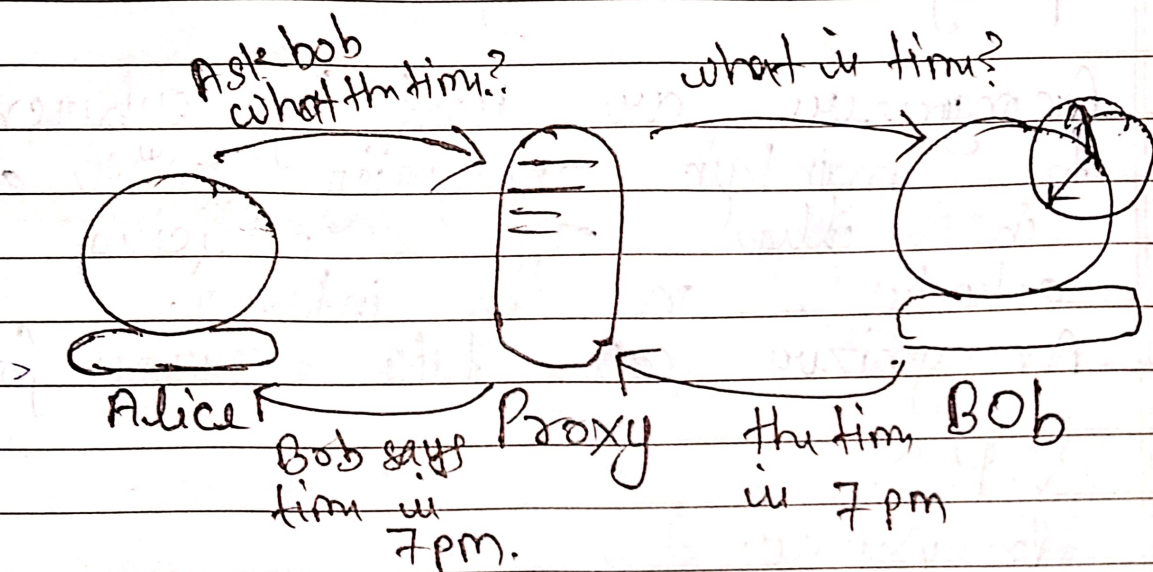 Ask bob
what the time?
what is time?
Alice
Proxy
BOb
Bob says
time is
7pm.
the time
is 7 pm